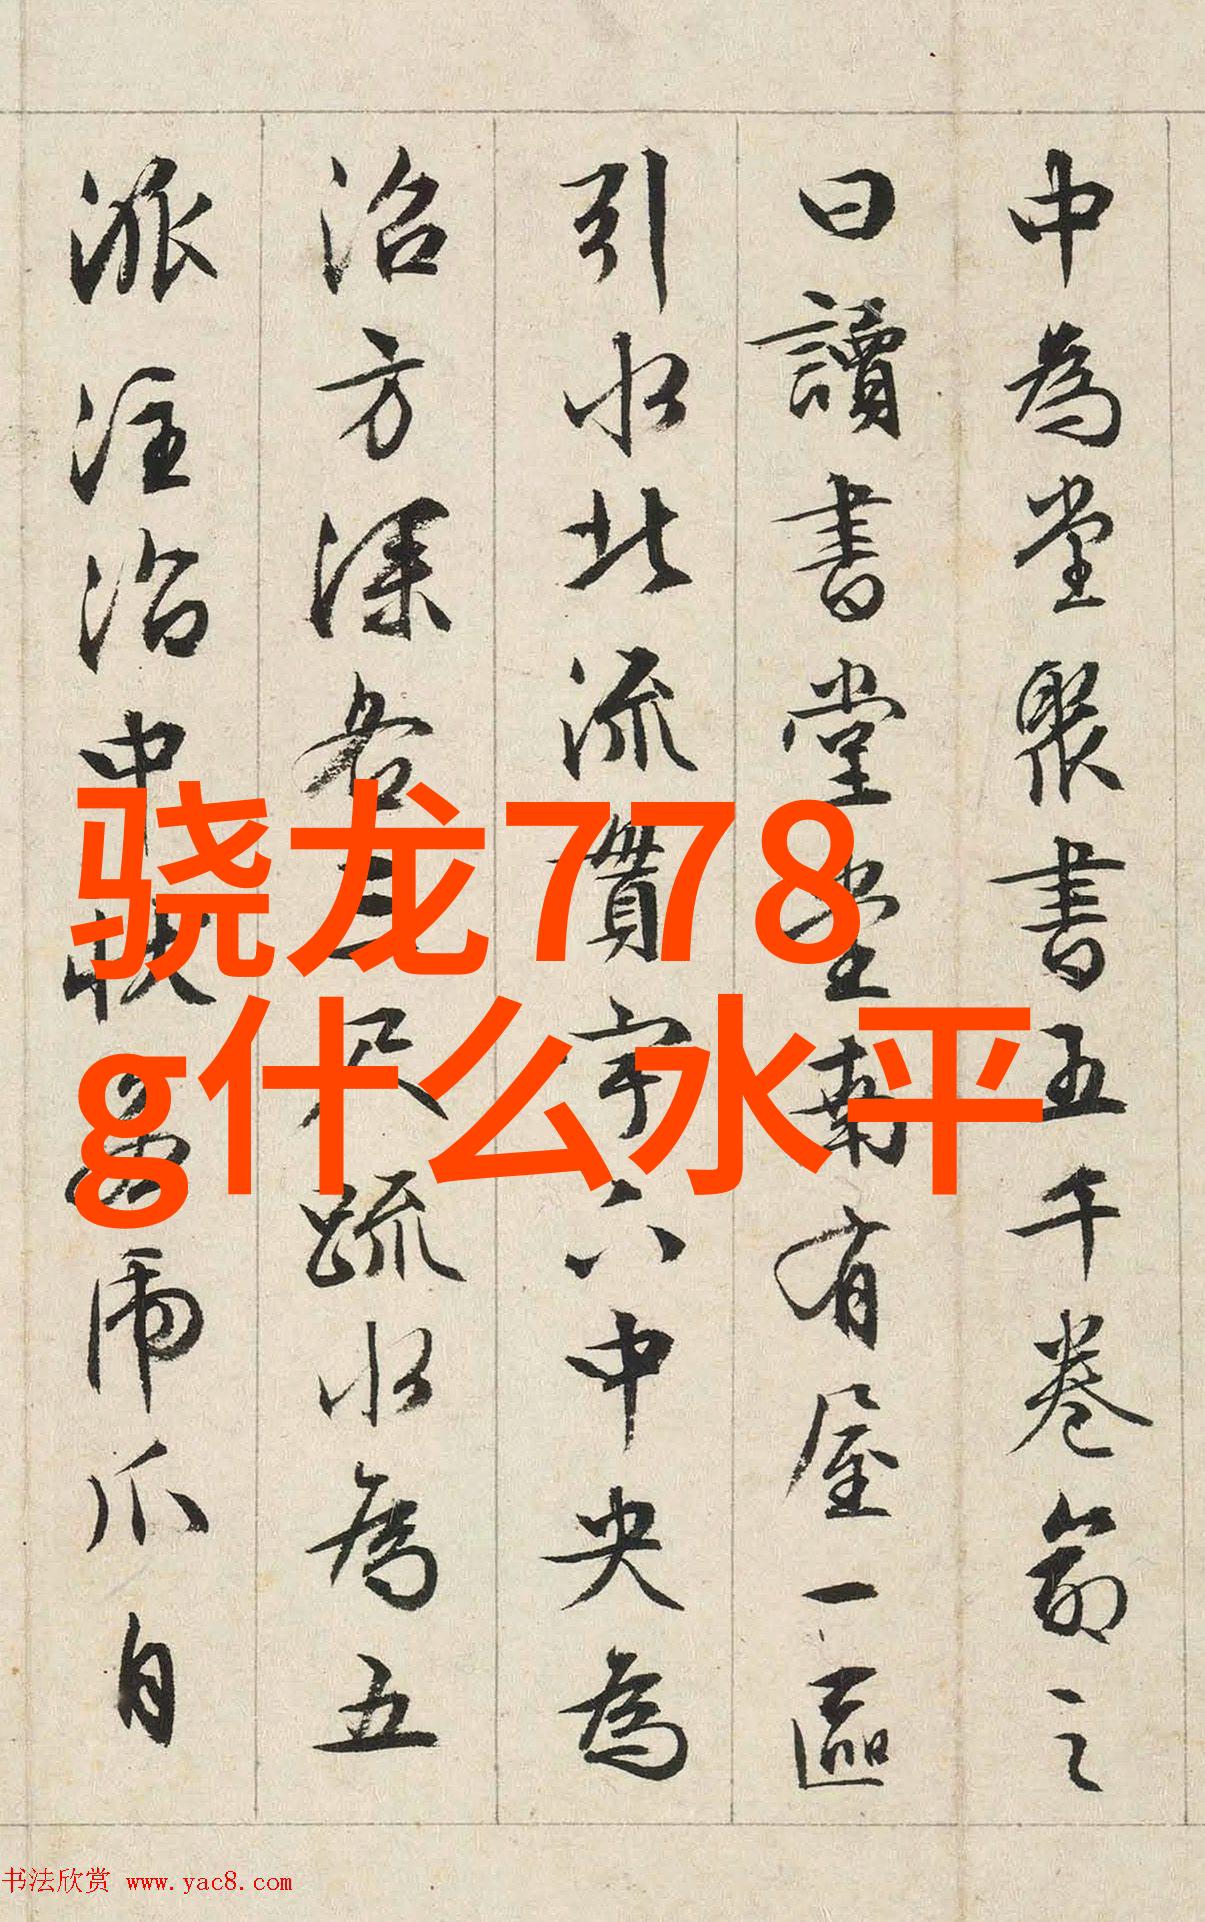 中為堂聚書五千卷命之
曰讀書堂堂南有屋一區
引水北流貫宇下中央為
沼方深各三尺疏水為五
派注沼中狀若虎爪自
骁龙778
g什么水平
书法欣赏 www.yac8.com